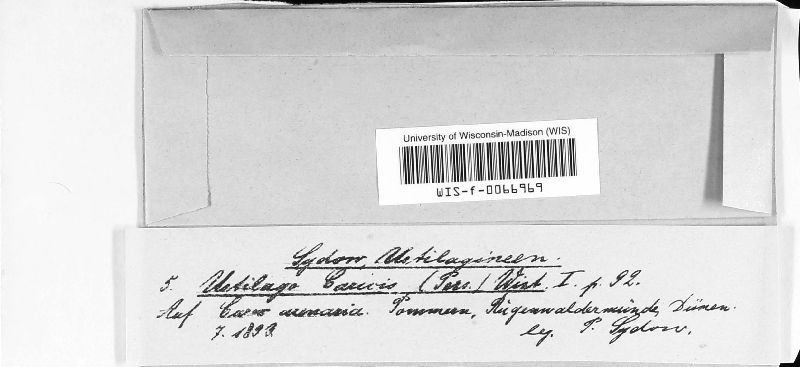 University of Wisconsin-Madison (WIS)
WIS-f-0066969
Sydow, Ustilagineen.
5. Ustilago Caricis (Pers.) Wint. I. p. 92.
Auf Carex arenaria. Pommern, Rügenwaldermünde, Dünen.
7. 1893. leg. P. Sydow.